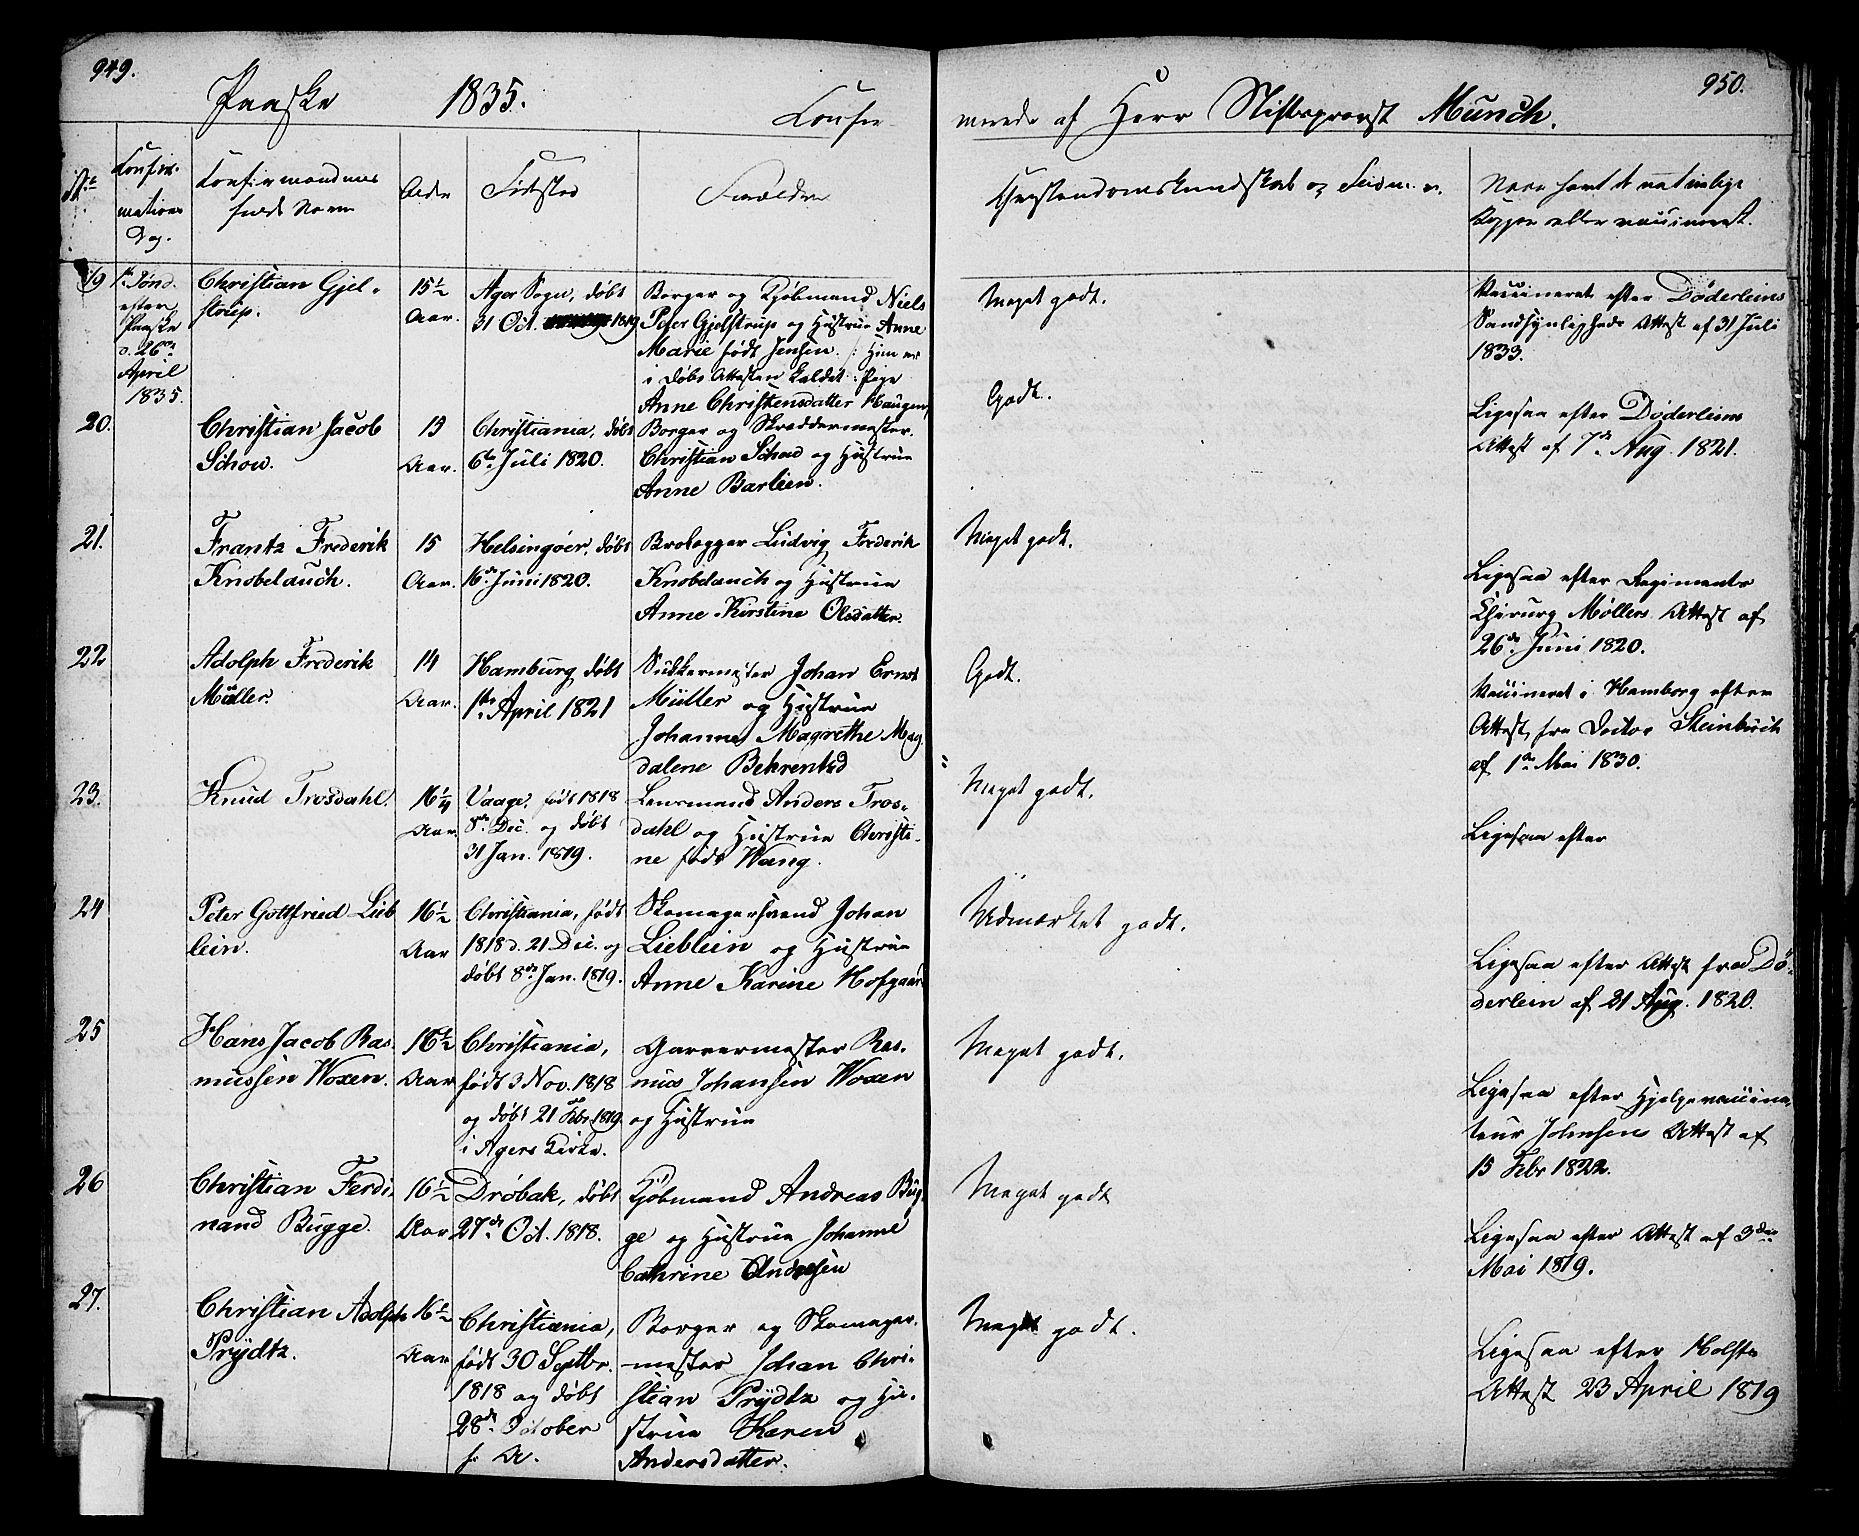 949.
Paaske 1835.
Confir-
merede af Herr Stiftsprovst Munch.
950.
No
Confir-
mations
Dag.
Confirmandens
fulde Navn
Alder
Fødested
Forældre
Christendomskundskab og Flid m. v.
Have havt de naturlige
Kopper eller vaccineret.
19
1ste Sønd.
efter
Paaske
d. 26de
April
1835.
Christian Gjel-
strup.
15½
Aar.
Ager Sogn, døbt
31 Oct. 1819
Borger og Kjøbmand Niels
Peter Gjelstrup og Hustrue Anne
Marie født Jensen. /: Hun er
i Døbe Attesten kaldet: Pige
Anne Christensdatter Haugen
Meget godt.
Vaccineret efter Døderleins
Sandsynligheds Attest af 31 Juli
1833.
20.
Christian Jacob
Schow.
15
Aar.
Christiania, døbt
6te Juli 1820.
Borger og Skreddermester
Christian Schow og Hustrue
Anne Barlien.
Godt.
Ligesaa efter Døderleins
Attest af 7de Aug. 1821.
21.
Frantz Frederik
Knobelauch.
15
Aar.
Helsingøer, døbt
16de Juni 1820.
Brolegger Ludvig Frederik
Knobelauch og Hustrue
Anne Kirstine Olsdatter.
Meget godt.
Ligesaa efter Regiments
Chirurg Møllers Attest af
26de Juni 1820.
22
Adolph Frederik
Müller.
14
Aar.
Hamburg, døbt
1ste April 1821
Sukkermester Johan Ernst
Müller og Hustrue
Johanne Magrethe Mag-
dalene Behrents
Godt.
Vaccineret i Hamborg efter
Attest fra Doctor Steinbuch
af 1ste Mai 1830.
23.
Knud Trosdahl.
16¼
Aar
Vaage, født 1818
8de Dec. og døbt
31 Jan. 1819.
Lensmand Anders Tros-
dahl og Hustrue Christi-
ne født Wang.
Meget godt.
Ligesaa efter
24
Peter Gottfried Lieb
lein.
16½
Aar
Christiania, født
1818 d. 21 Dec. og
døbt 8de Jan. 1819.
Skomagersvend Johan
Lieblein og Hustrue
Anne Karine Hofgaar
Udmærket godt.
Ligesaa efter Attest fra Dø-
derlein af 21 Aug. 1820.
25
Hans Jacob Ras-
mussen Woxen.
16½
Aar
Christiania,
født 3 Nov. 1818
og døbt 21 Febr 1819
i Agers Kirke.
Garvermester Ras-
mus Johansen Woxen
og Hustrue
Meget godt.
Ligesaa efter Hjelpevaccina-
teur Johnsens Attest af
15 Febr 1822.
26
Christian Ferdi
nand Bugge.
16½
Aar
Drøbak, døbt
27de Oct. 1818.
Kjøbmand Andreas Bug
ge og Hustrue Johanne
Cathrine Andresen
Meget godt
Ligesaa efter Attest af 3die
Mai 1819.
27.
Christian Adolph
Prÿdtz.
16½
Aar
Christiania,
født 30 Septbr.
1818 og døbt
28de October
s. A.
Borger og Skomager-
mester Johan Chri-
stian Prÿdtz og Hu-
strue Karen
Andersdatter.
Meget godt.
Ligesaa efter Holsts
Attest 23 April 1819